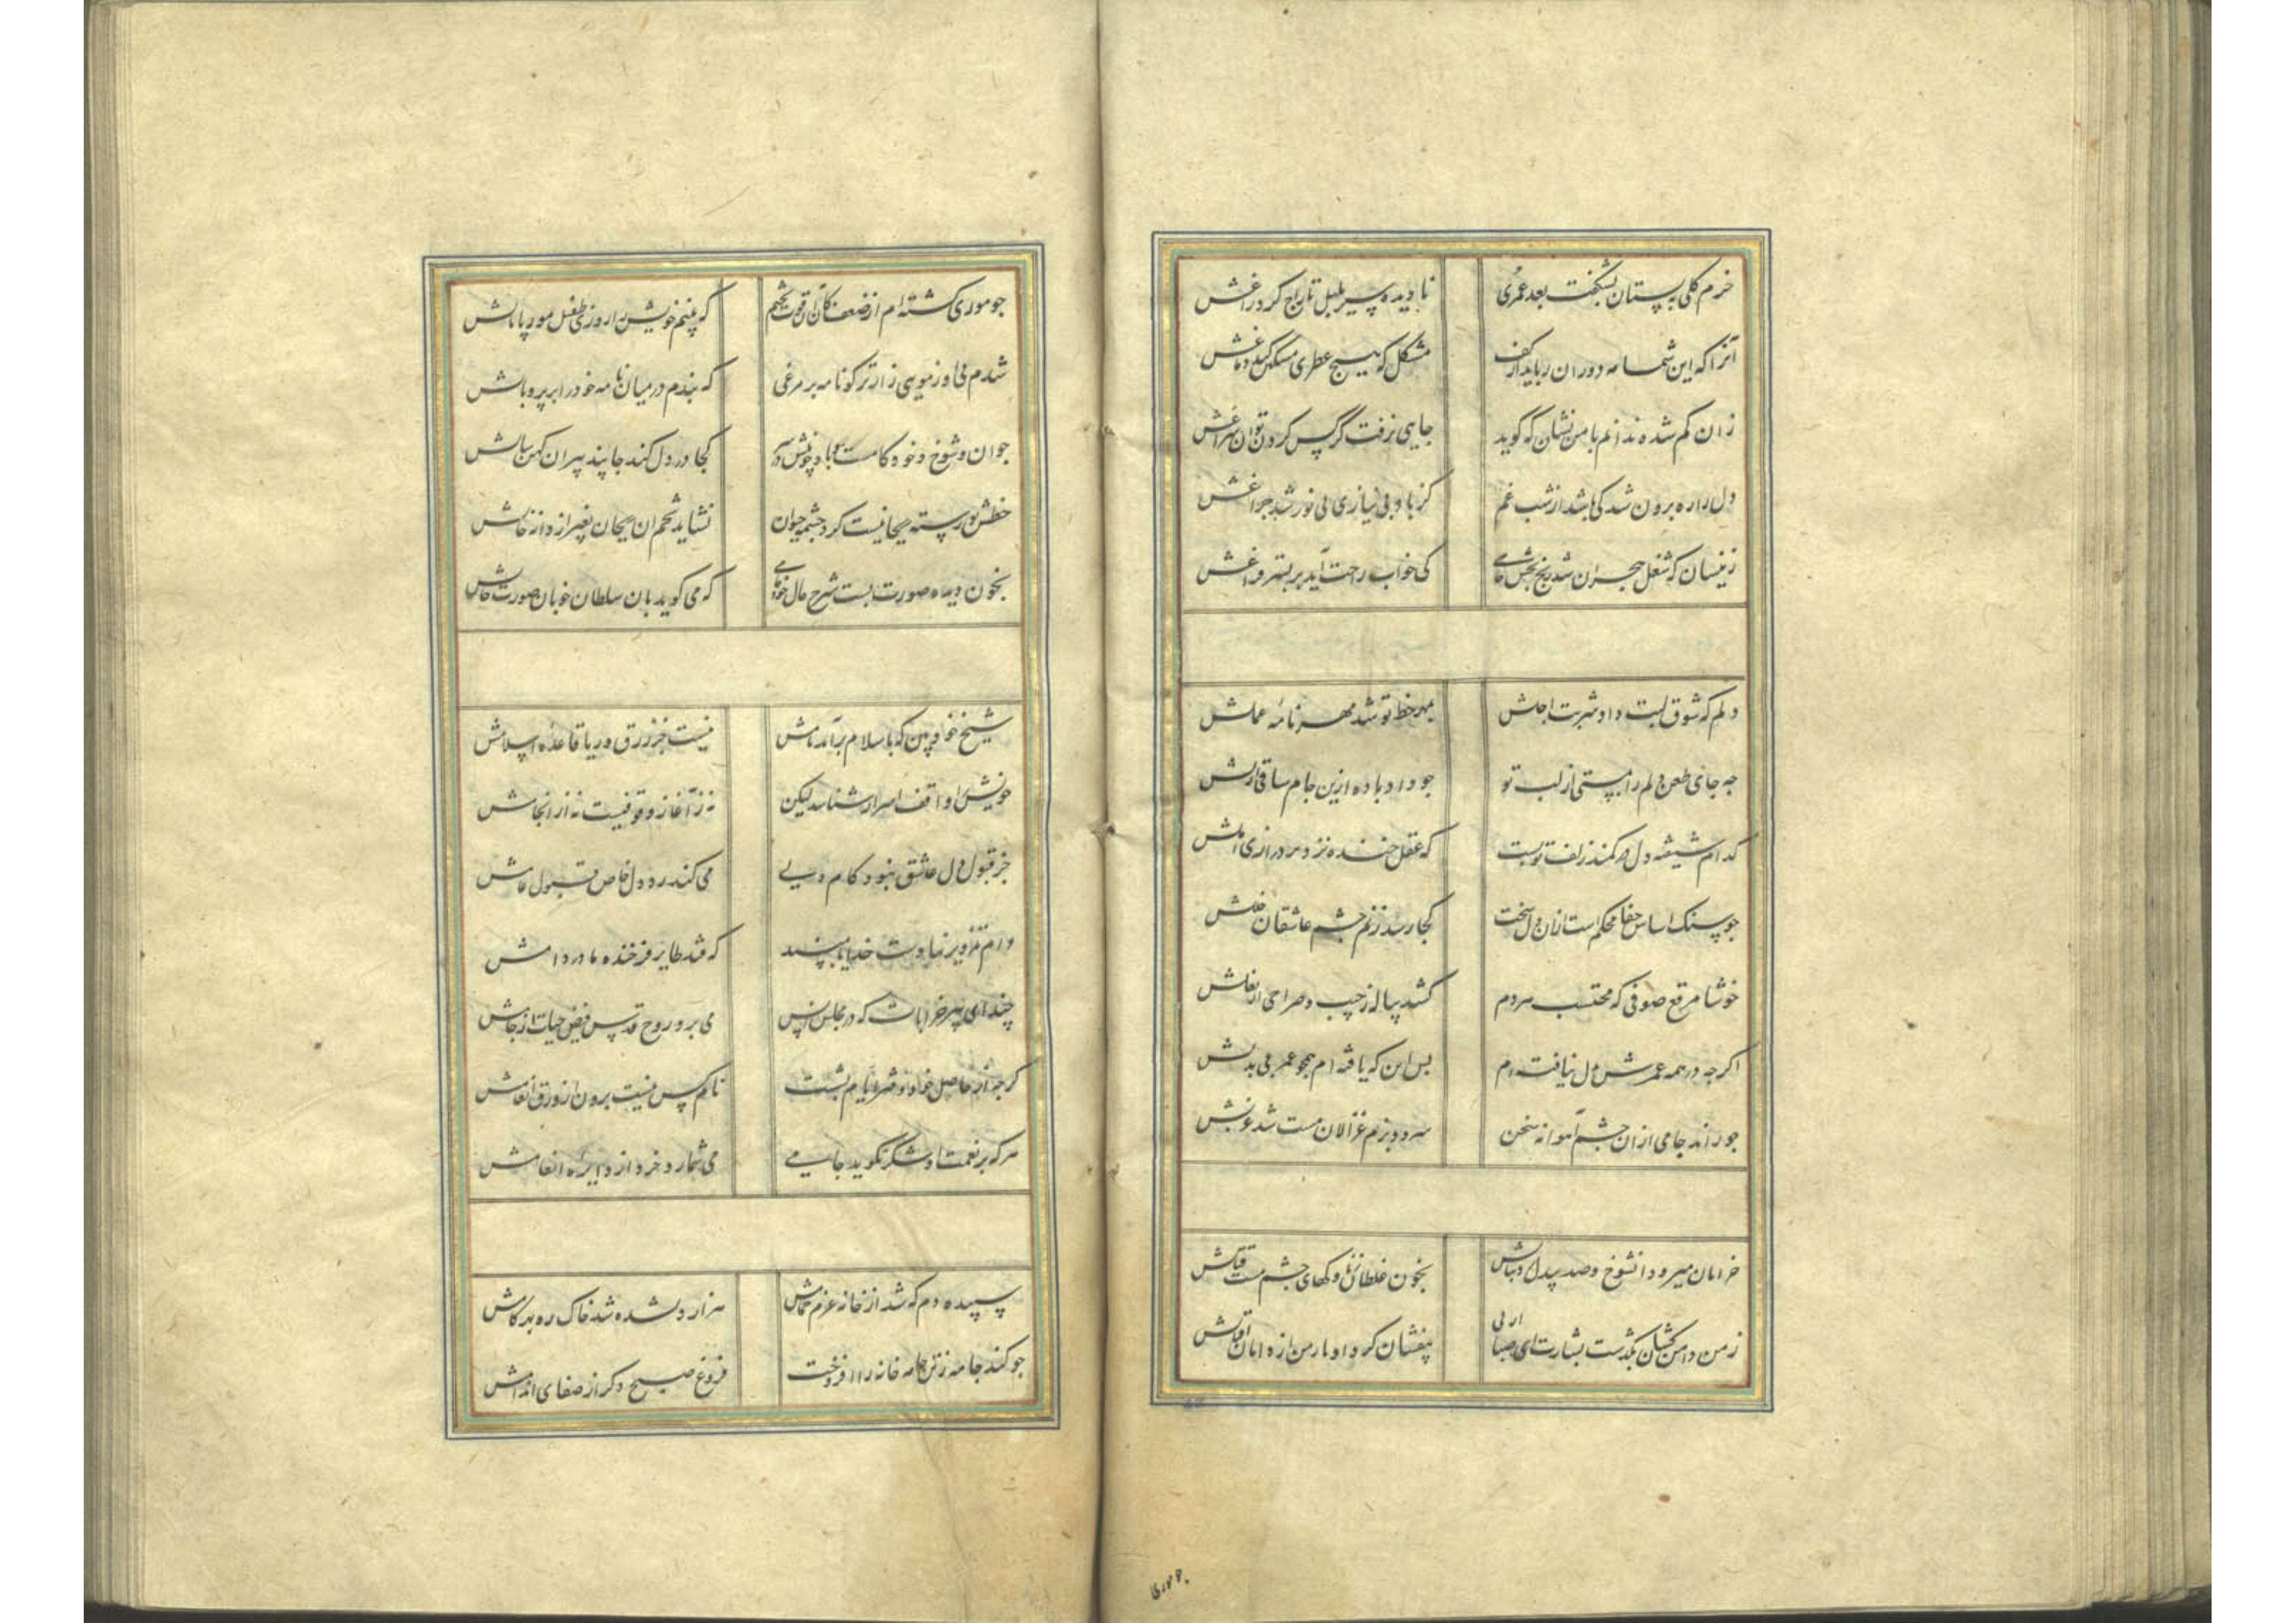 خرم گلی به بستان بشکفت بعد عمری نادیده سیر بلبل تاراج کرد زاغش
آنرا که این شمامه دوران رباید از کف مشکل که هیچ عطری مشکین کند دماغش
زان کم شده ندانم با من نشان که کوید جایی نرفت کز پس کردن توان سراغش
دل را ره برون شد کی باشد از شب غم کز باد بی نیازی بی نور شد جراغش
زینسان که شغل هجران شد رنج بخش جامی کی خواب راحت آید بر بستر فراغش
دلم که شوق لبت داد شربت اجلش مهر خط تو شد مهر نامهٔ عملش
جه جای طعن دلم را بمستی از لب تو جو داد باده ازین جام ساقی ازلش
کدام شیفته دل در کمند زلف تو بست که عقل خنده نزد بر درازی املش
جو سنک اساس جفا محکم است ازان دل سخت کجا رسد ز نم جشم عاشقان خللش
خوشا مرقع صوفی که محتسب هر دم کشد پیاله ز جیب و صراحی از بغلش
اکر جه در همه عمرش دل نیافته ام بس این که یافته ام همجو عمر بی بدلش
جو راند جامی ازان جشم آهوانه سخن سرود بزم غزالان مست شد غزلش
خرامان میرود آنشوخ و صد بیدل ز دنبالش بخون غلطان ز ناوکهای جشم مست قتالش
ز من دامن کشان بگذشت بشارت ای صبا از پی بیفشان کرد ادبار من از دامان اقبالش
جو موری
جو موری کشته ام از ضعف کان قوت نجشم که بینم خویش را روزی طفیل مور پامالش
شدم فی او ز مویی زارتر کو نامه بر مرغی که بندم در میان نامه خود را بر پر و بالش
جوان و شوخ و خود کامست با خویش در سر کجا در دل کند جا پند پیران کهن سالش
خطش نو رسته ریحانیست کرد چشمه حیوان نشاید تخم آن ریحان بغیر از دانه خالش
بخون دیده صورت بست شرح حال خود جامی که می کوید بان سلطان خوبان صورت حالش
شیخ خودبین که باسلام برآمد نامش نیست جز زرق و ریا قاعده اسلامش
خویش را واقف اسرار شناسد لیکن نه ز آغاز وقوفیست نه از انجامش
جز قبول دل عاشق نبود کام ولی می کند رد دل خاص قبول عامش
دام تزویر نهادست خدایا مپسند که فتد طایر فرخنده ما در دامش
جندای پیر خرابات که در مجلس انس می برد روح قدس فیض حیات از جامش
کرجه از حاصل خود دفتر ایام بشست نام کس نیست برون از ورق انعامش
هر که بر نعمت او شکر نکوید جامی می شمارد خرد از دایرهٔ انعامش
سپیده دم که شد از خانه عزم حمامش هزار دلشده شد خاک ره بهر کامش
جو کند جامه ز تن جامه خانه را افروخت فروغ صبح دکر از صفای اندامش